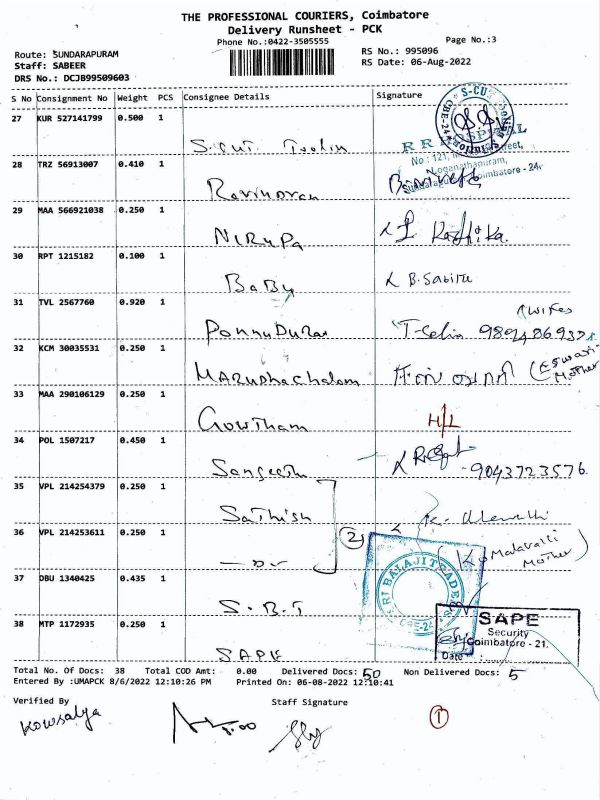 THE PROFESSIONAL COURIERS, Coimbatore
Delivery Runsheet - PCK
Phone No.:0422-3505555
Page No.:3
Route: SUNDARAPURAM
Staff: SABEER
DRS No.: DCJB99509603
RS No.: 995096
RS Date: 06-Aug-2022
S No Consignment No Weight PCS Consignee Details Signature
27 KUR 527141799 0.500 1
28 TRZ 56913007 0.410 1
29 MAA 566921038 0.250 1 NIRUPA
30 RPT 1215182 0.100 1 BaBy B. Sabitu
31 TVL 2567760 0.920 1 PonnuDurai T-Selin
32 KCM 30035531 0.250 1 Maruthachalam (Eswari- Mother
33 MAA 290106129 0.250 1 Gowtham H/L
34 POL 1507217 0.450 1 Sangeeth -9043723576
35 VPL 214254379 0.250 1 Sathish
36 VPL 214253611 0.250 1 (Komalavalli Mother)
37 DBU 1340425 0.435 1 S.B.T
38 MTP 1172935 0.250 1 SAPE
2
SRI BALAJI TRADERS
CBE-24
SAPE
Security
Coimbatore - 21.
Date :
Total No. Of Docs: 38 Total COD Amt: 0.00 Delivered Docs: 50 Non Delivered Docs: 5
Entered By :UMAPCK 8/6/2022 12:10:26 PM Printed On: 06-08-2022 12:10:41
Verified By
Kowsalya
Staff Signature
1